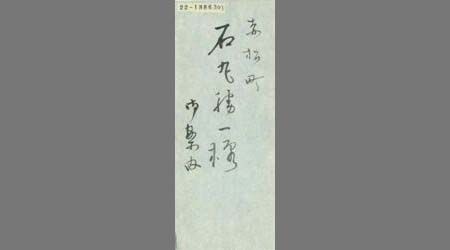 22-1886301
赤松町
石丸勝一様
御案内